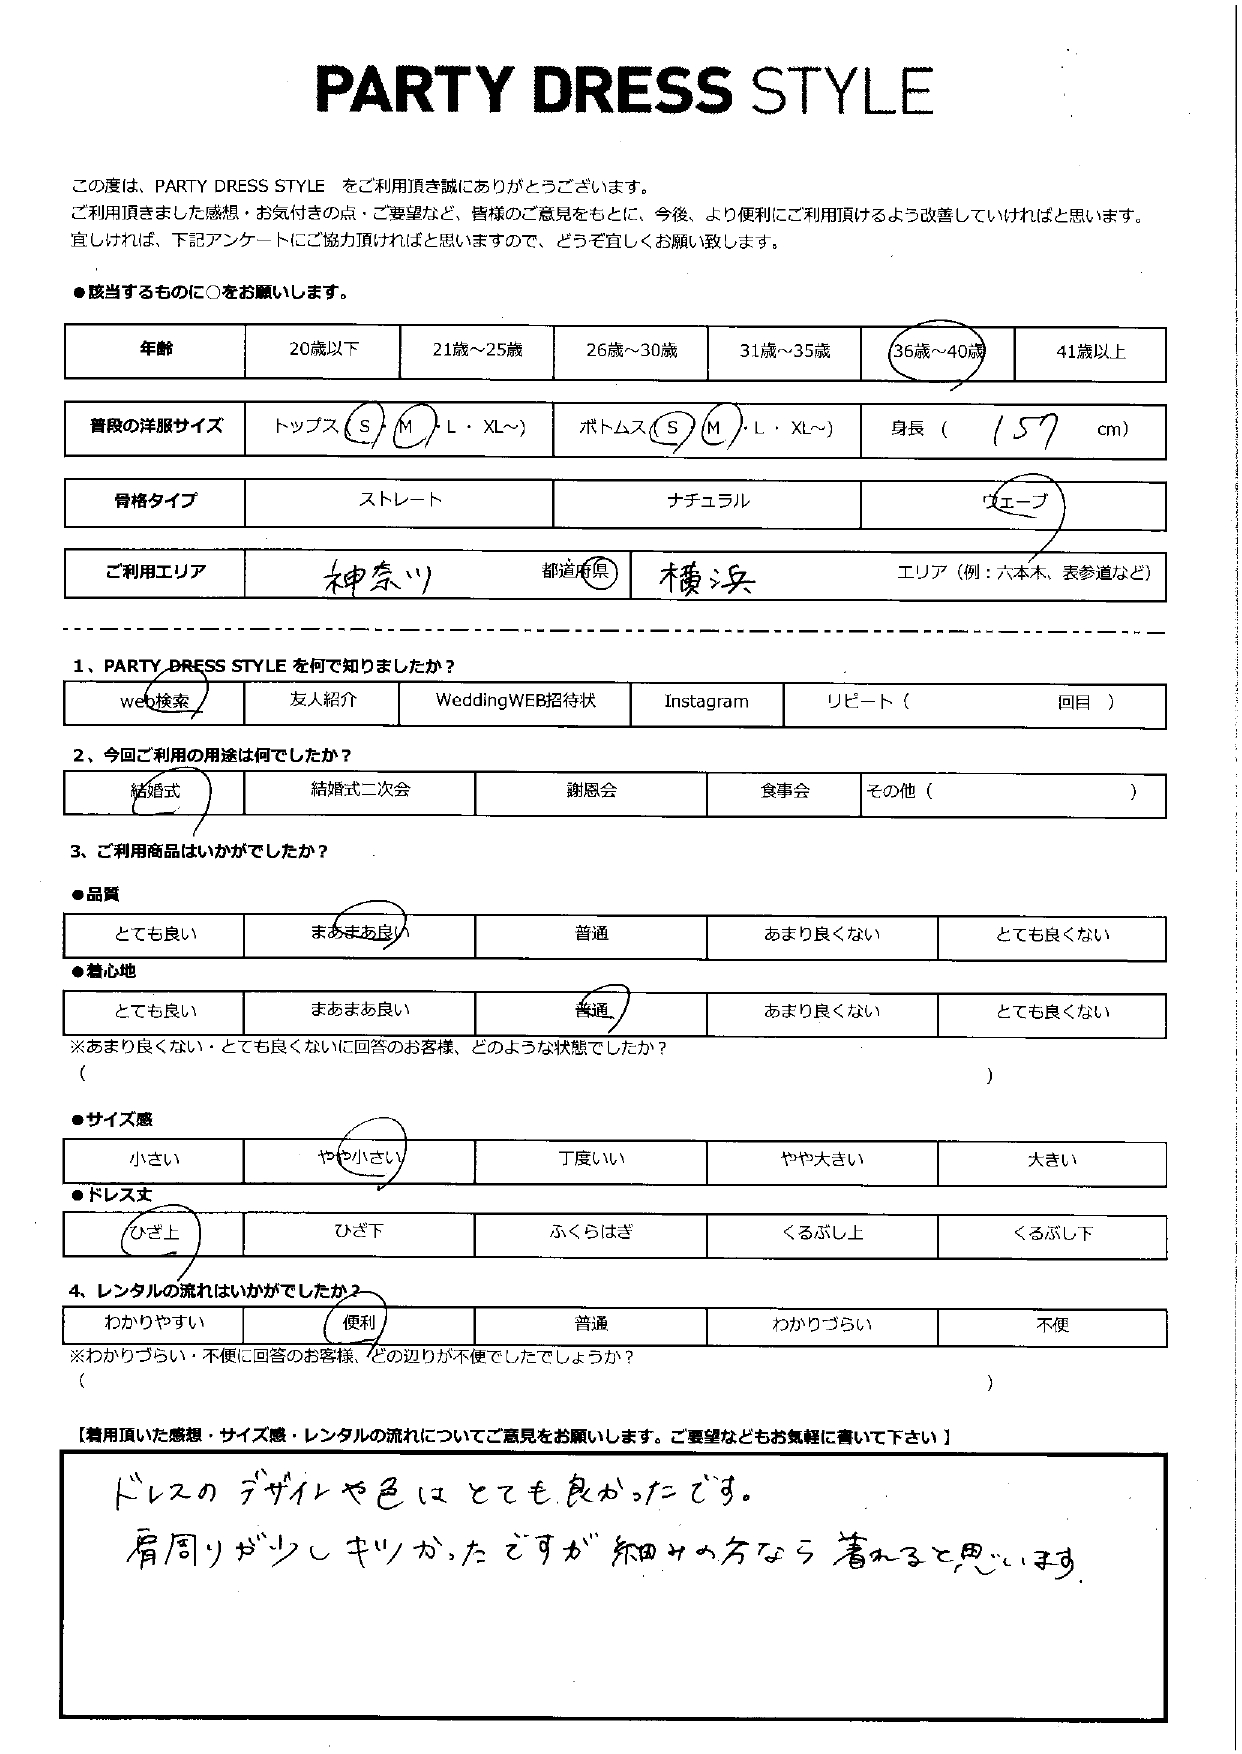 PARTY DRESS STYLE
この度は、PARTY DRESS STYLE をご利用頂き誠にありがとうございます。
ご利用頂きました感想・お気付きの点・ご要望など、皆様のご意見をもとに、今後、より便利にご利用頂けるよう改善していければと思います。
宜しければ、下記アンケートにご協力頂ければと思いますので、どうぞ宜しくお願い致します。
●該当するものに○をお願いします。
年齢 20歳以下 21歳～25歳 26歳～30歳 31歳～35歳 36歳～40歳 41歳以上
普段の洋服サイズ トップス(S・M・L・XL～) ボトムス(S・M・L・XL～) 身長 ( 157 cm)
骨格タイプ ストレート ナチュラル ウェーブ
ご利用エリア 神奈川 都道府県 横浜 エリア（例：六本木、表参道など）
1、PARTY DRESS STYLE を何で知りましたか？
web検索 友人紹介 WeddingWEB招待状 Instagram リピート（ 回目 ）
2、今回ご利用の用途は何でしたか？
結婚式 結婚式二次会 謝恩会 食事会 その他（ ）
3、ご利用商品はいかがでしたか？
●品質
とても良い まあまあ良い 普通 あまり良くない とても良くない
●着心地
とても良い まあまあ良い 普通 あまり良くない とても良くない
※あまり良くない・とても良くないに回答のお客様、どのような状態でしたか？
（ ）
●サイズ感
小さい やや小さい 丁度いい やや大きい 大きい
●ドレス丈
ひざ上 ひざ下 ふくらはぎ くるぶし上 くるぶし下
4、レンタルの流れはいかがでしたか？
わかりやすい 便利 普通 わかりづらい 不便
※わかりづらい・不便に回答のお客様、どの辺りが不便でしたでしょうか？
（ ）
【着用頂いた感想・サイズ感・レンタルの流れについてご意見をお願いします。ご要望などもお気軽に書いて下さい 】
ドレスの デザインや色は とても良かったです。
肩周りが少し キツかったですが 細みの方なら 着れると思います.